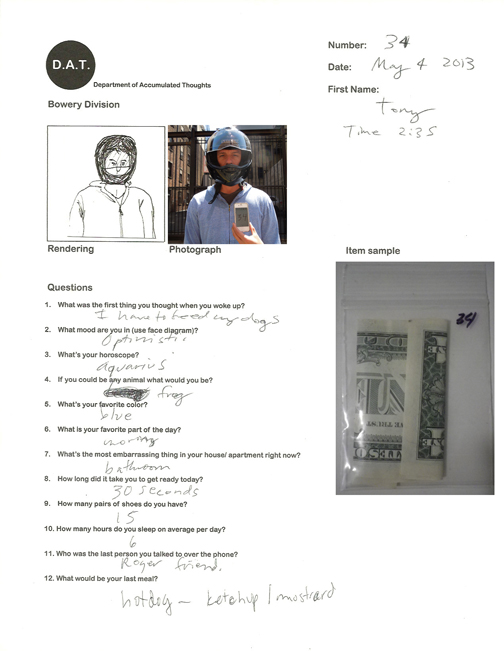 D.A.T.
Department of Accumulated Thoughts
Bowery Division
Number: 34
Date: May 4 2013
First Name:
Tony
Time 2:35
Rendering
Photograph
Item sample
34
Questions
1. What was the first thing you thought when you woke up?
I have to feed my dogs
2. What mood are you in (use face diagram)?
optimistic
3. What's your horoscope?
aquarius
4. If you could be any animal what would you be?
frog
5. What's your favorite color?
blue
6. What is your favorite part of the day?
morning
7. What's the most embarrassing thing in your house/ apartment right now?
bathroom
8. How long did it take you to get ready today?
30 seconds
9. How many pairs of shoes do you have?
15
10. How many hours do you sleep on average per day?
6
11. Who was the last person you talked to over the phone?
Roger friend.
12. What would be your last meal?
hotdog - ketchup / mostrard